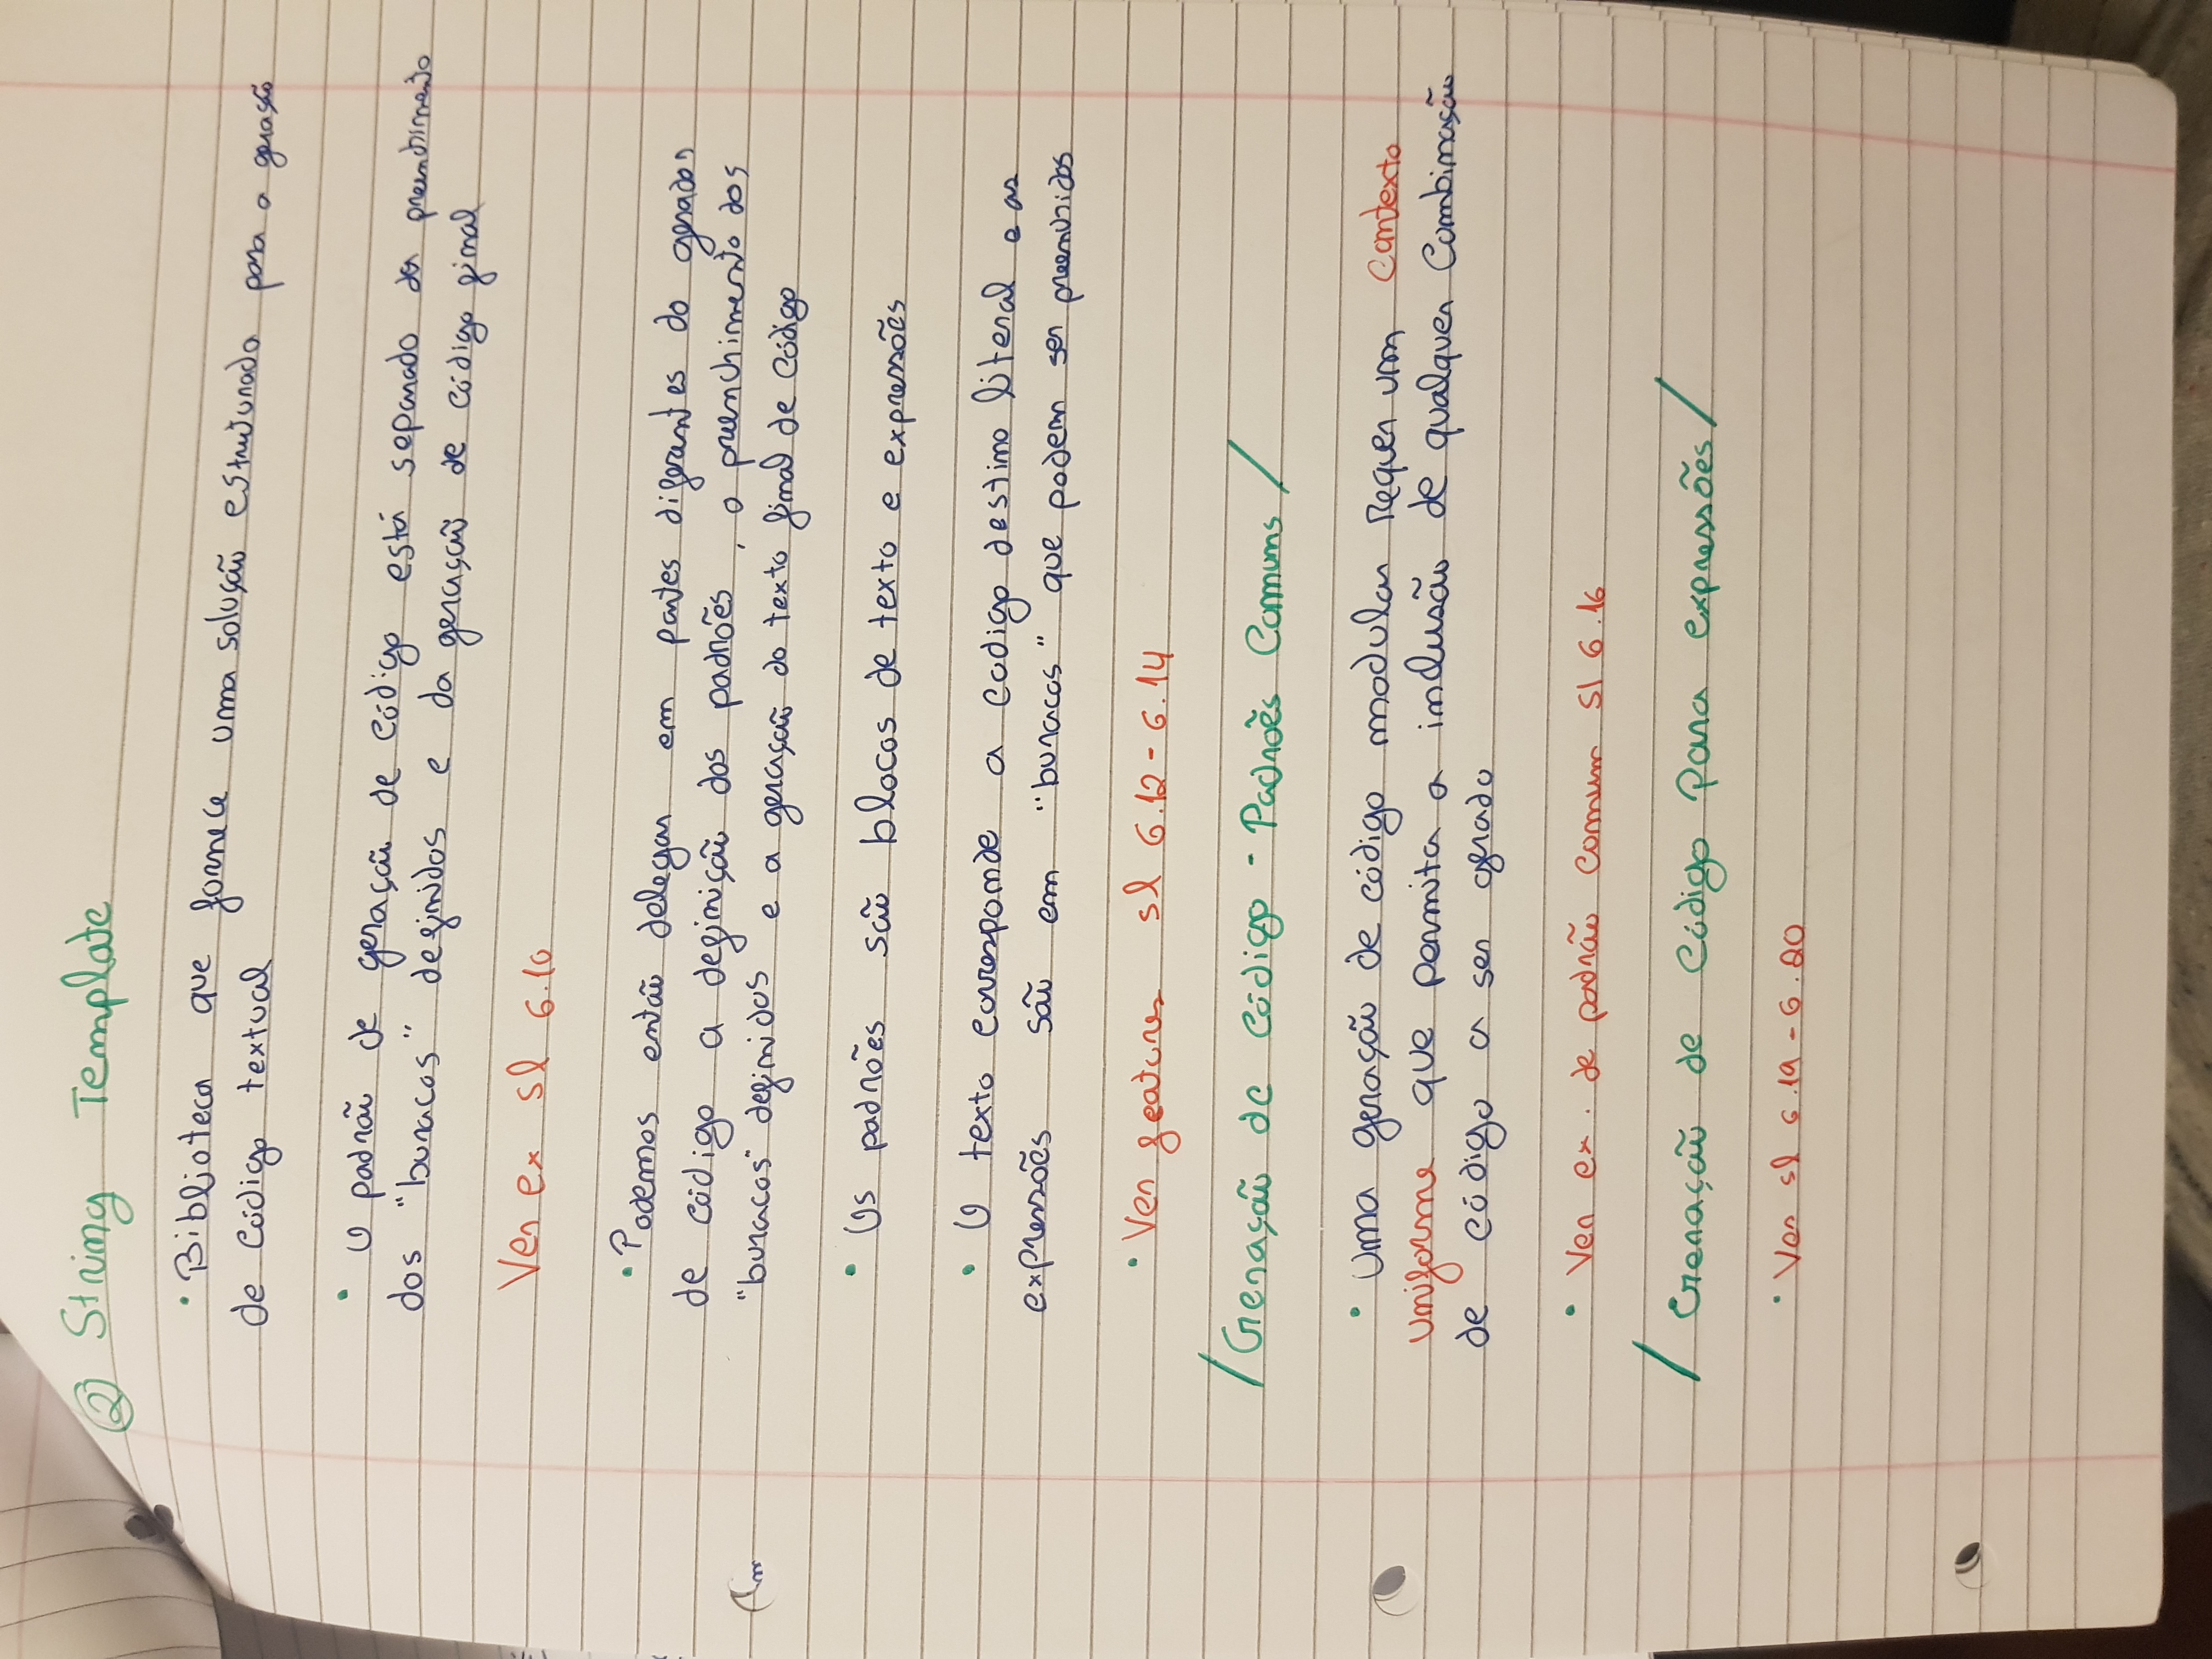 ② String Template
• Biblioteca que fornece uma solução estruturada para a geração
de código textual
• O padrão de geração de código está separado do preenchimento
dos "buracos" definidos e da geração de código final
Ver ex sl 6.10
• Podemos então delegar em partes diferentes do gerador
de código a definição dos padrões, o preenchimento dos
"buracos" definidos e a geração do texto final de código
• Os padrões são blocos de texto e expressões
• O texto corresponde a codigo destino literal e as
expressões são em "buracos" que podem ser preenchidos
• Ver features sl 6.12 - 6.14
/ Geração de Código - Padrões Comuns /
• Uma geração de código modular requer um contexto
uniforme que permita a inclusão de qualquer combinação
de código a ser gerado
• Ver ex. de padrão comum sl 6.16
/ Geração de Código para expressões /
• Ver sl 6.19 - 6.20